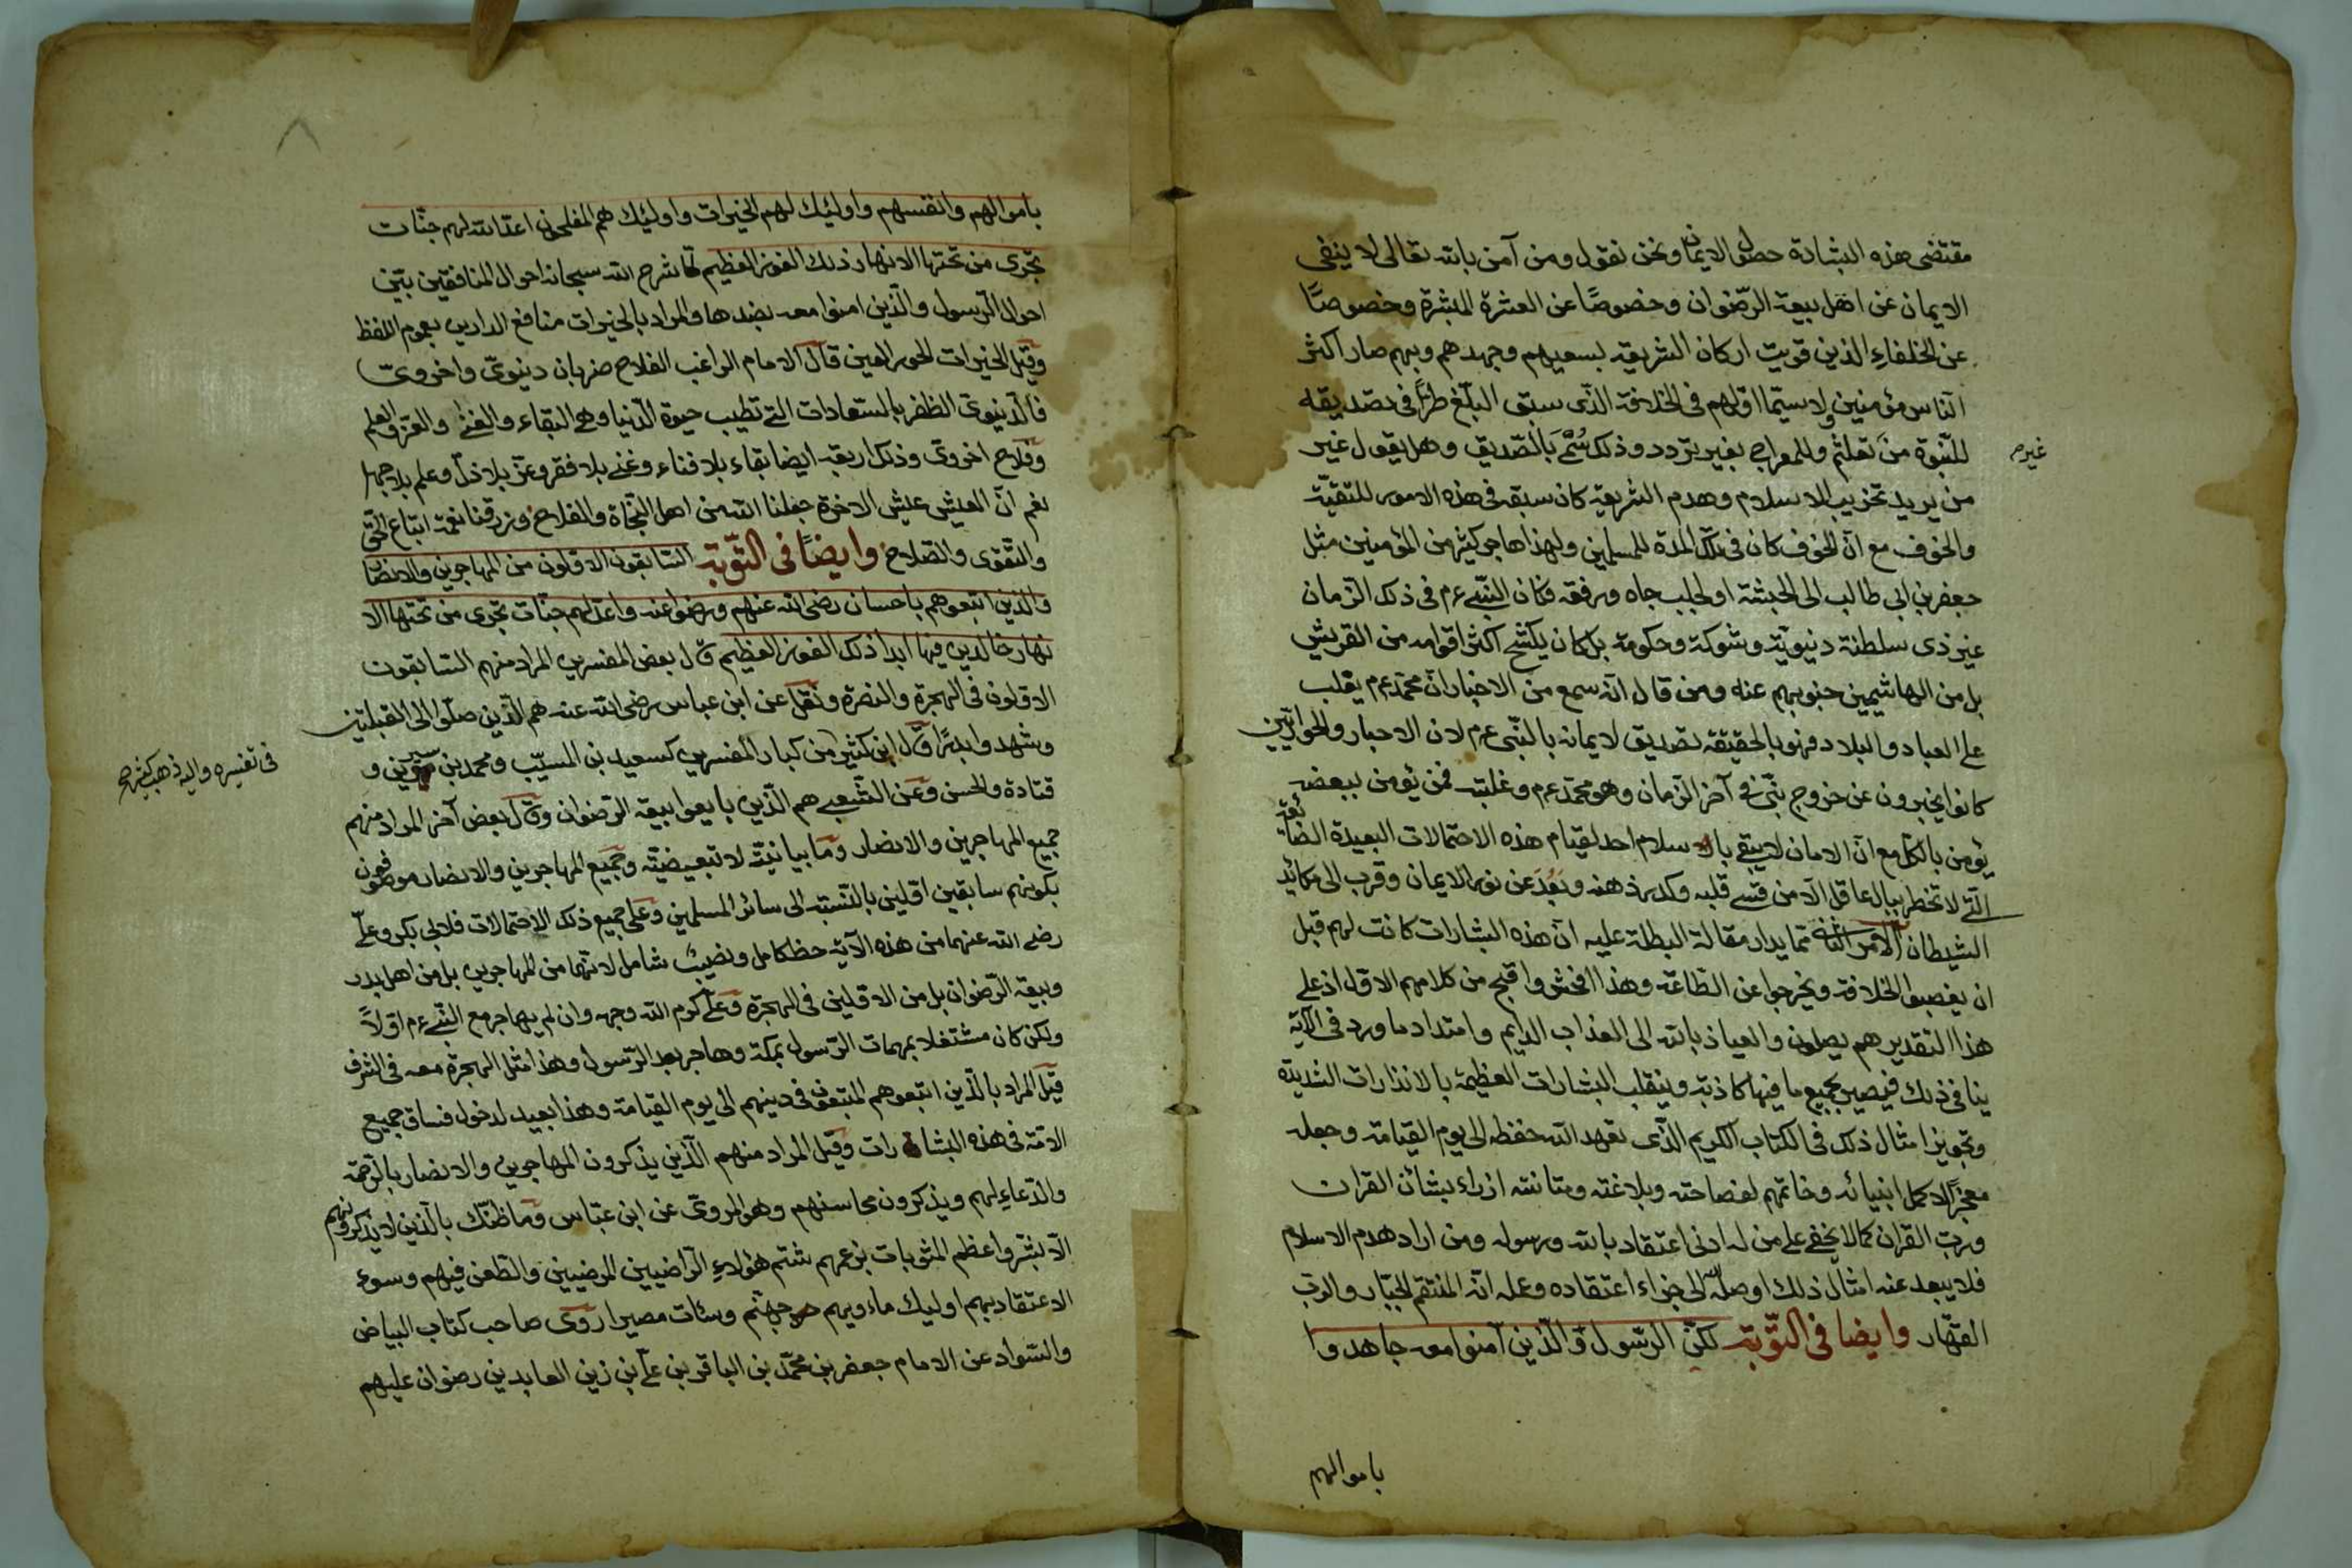 مقتضى هذه البشارة حصول الايمان ونحن نقول ومن آمن بالله تعالى لا ينفى
الايمان عن اهل بيعة الرّضوان وخصوصًا عن العشرة المبشرة وخصوصًا
عن الخلفاءِ الذين قويت اركان الشريعة بسعيهم وجهدهم وبهم صار اكثر
النّاس مؤمنين ولا سيّما اوّلهم فى الخلافة الذّى سبق البلّغ طرًّا فى تصديقه
للنّبوة من تعلثم وللمعراج بغير تردد وذلك سُمَّى بالصّديق وهل يقول غير
غيرم
من يريد تخريب الاسلام وهدم الشريعة كان سبقه فى هذه الامور للتقيّة
والخوف مع انّ الخوف كان فى تلك المدة للمسلمين ولهذا هاجر كثير من المؤمنين مثل
جعفر بن ابى طالب الى الحبشة او لجلب جاه ورفقه فكان النّبى ءم فى ذلك الزّمان
غير ذى سلطنة دنيويّة وشوكة وحكومة بل كان يكشح اكثر اقوامه من القريش
بل من الهاشيمين جنوبهم عنه ومن قال انّه سمع من الاخبار انّ محمّد ءم يقلب
على العباد والبلاد فهو بالحقيقة تصديق لايمانه بالنّبى ءم لان الاحبار والحواريّين
كانوا يخبرون عن خروج نبّى فى آخر الزّمان وهو محمّد ءم وغلبته فمن يؤمن ببعضه
يؤمن بالكلّ مع انّ الامان لا يبقى بالاسلام احد لقيام هذه الاحتمالات البعيدة الضائعة
الّتى لا تخطر ببال عاقل الّا من قسى قلبه وكدر ذهنه وبَعُدَ عن نور الايمان وقرب الى مكائد
الشيطان الامر الثانى مما يدار مقالة البطلة عليه انّ هذه البشارات كانت لهم قبل
ان يغصبوا الخلافة ويخرجوا عن الطّاعة وهذا افحش واقبح من كلامهم الاوّل اذ على
هذا التقدير هم يصلون والعياذ بالله الى العذاب الدايم وامتداد ما ورد فى الآية
ينافى ذلك فيصير جميع ما فيها كاذبة وينقلب البشارات العظيمة بالانذارات الشديدة
وتجويز امثال ذلك فى الكتاب الكريم الذّى تعهد الله حفظه الى يوم القيامة وجعله
معجزًا لاكمل انبيائه وخاتمهم لفصاحته وبلاغته ومتانته ازراء بشان القران
وربّ القران كما لا يخفى على من له ادنى اعتقاد بالله ورسوله ومن اراد هدم الاسلام
فلا يبعد عنه امثال ذلك اوصله الله الى جزاء اعتقاده وعمله انّه المنتقم الجبّار والربّ
القهّار وايضا فى التّوبة لكنّ الرّسول والّذين آمنوا معه جاهدوا
باموالهم
باموالهم وانفسهم واوليئك لهم الخيرات واوليئك هم المفلحون اعدّ الله لهم جنّات
تجرى من تحتها الانهار ذلك الفوز العظيم لما شرح الله سبحانه احوال المنافقين بيّن
احوال الرّسول والّذين امنوا معه بضدها والمراد بالخيرات منافع الدارين بعموم اللفظ
وقيل الخيرات الحور العين قال الامام الراغب الفلاح ضربان دينوىّ واخروىّ
فالدّينوىّ الظفر بالسعادات التى تطيب حيوة الدّنيا وهى البقاء والغنى والعزّ والعلم
وفلاح اخروىّ وذلك اربعة ايضا بقاء بلا فناء وغنى بلا فقر وعزّ بلا ذلّ وعلم بلا جهل
نعم انّ العيش عيش الاخرة جعلنا الله من اهل النّجاة والفلاح ورزقنا نعمة اتباع التّقى
والتّقوى والصّلاح وايضًا فى التّوبة السّابقون الاوّلون من المهاجرين والانصار
والذين اتبعوهم باحسان رضى الله عنهم ورضوا عنه واعدّ لهم جنّات تجرى من تحتها الا
نهار خالدين فيها ابدا ذلك الفوز العظيم قال بعض المفسرين المراد منهم السّابقون
الاوّلون فى الهجرة والنصرة ونقل عن ابن عباس رضى الله عنه هم الّذين صلّوا الى القبلتين
وشهدوا بدرًا قال ابن كثير من كبار المفسرين كسعيد بن المسيّب ومحمد بن سيرين و
فى تفسيره واليه ذهب كثير
قتادة والحسن وعن الشّعبى هم الّذين بايعوا بيعة الرّضوان وقال بعض آخر المراد منهم
جميع المهاجرين والانصار وما بيانيّة لا تبعيضيّة وجميع المهاجرين والانصار موصوفون
بكونهم سابقين اوّلين بالنّسبة الى سائر المسلمين وعلى جميع ذلك الاحتمالات فلابى بكر وعلّى
رضى الله عنهما من هذه الآية حظ كامل ونصيب شامل لانّهما من المهاجرين بل من اهل بدر
وبيعة الرّضوان بل من الاوّلين فى الهجرة وعلّى كرم الله وجهه وان لم يهاجر مع النّبى ءم اوّلًا
ولكن كان مشتغلا بمهمات الرّسول بمكة وهاجر بعد الرّسول وهذا مثل الهجرة معه فى الشرف
قيل المراد بالّذين اتبعوهم المتبعون فى دينهم الى يوم القيامة وهذا بعيد لدخول فساق جميع
الامّة فى هذه البشارات وقيل المراد منهم الّذين يذكرون المهاجرين والانصار بالرّحمة
والدّعاءِ لهم ويذكرون محاسنهم وهو المروىّ عن ابن عبّاس وما ظنّك بالّذين لا يذكرونهم
الّا بشّر واعظم المثوبات بزعمهم شتم هؤلاءِ الرّاضيين المرضيين والطّعن فيهم وسوء
الاعتقاد بهم اوليك ماءويهم جهنّم وسئات مصيرا روى صاحب كتاب البياض
والسّواد عن الامام جعفر بن محمّد بن الباقر بن علّى بن زين العابدين رضوان عليهم